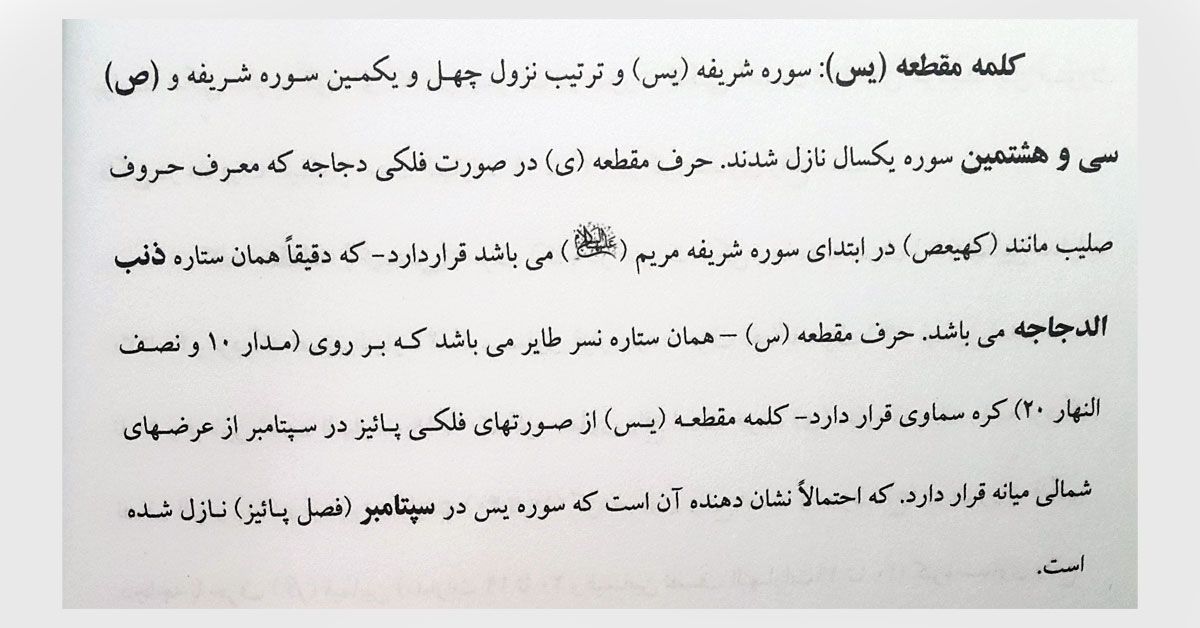 کلمه مقطعه (یس): سوره شریفه (یس) و ترتیب نزول چهل و یکمین سوره شریفه و (ص)
سی و هشتمین سوره یکسال نازل شدند. حرف مقطعه (ی) در صورت فلکی دجاجه که معرف حروف
صلیب مانند (کهیعص) در ابتدای سوره شریفه مریم (علیها السلام) می باشد قراردارد- که دقیقاً همان ستاره ذنب
الدجاجه می باشد. حرف مقطعه (س) – همان ستاره نسر طایر می باشد که بر روی (مدار ۱۰ و نصف
النهار ۲۰) کره سماوی قرار دارد- کلمه مقطعه (یس) از صورتهای فلکی پائیز در سپتامبر از عرضهای
شمالی میانه قرار دارد. که احتمالاً نشان دهنده آن است که سوره یس در سپتامبر (فصل پائیز) نازل شده
است.